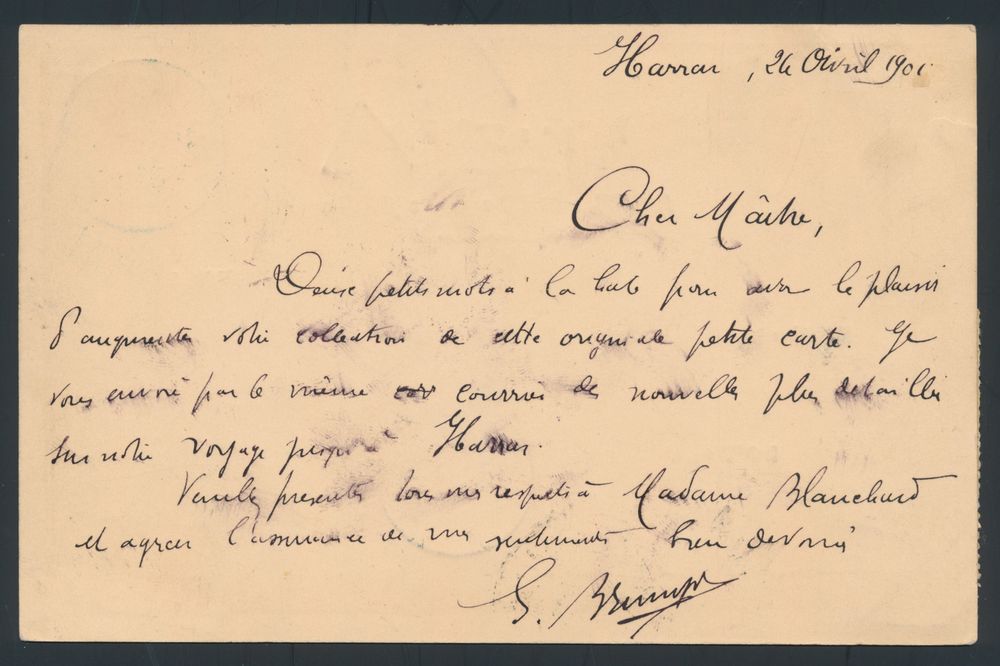 Harrar, 24 Avril 1901
Cher Maître,
Deux petits mots à la hate pour avoir le plaisir
d'augmenter votre collection de cette originale petite carte. Je
vous envoie par le même courrier des nouvelles plus detaillées
sur notre voyage jusqu'à Harrar.
Veuillez presenter tous mes respects à Madame Blanchard
et agreer l'assurance de mes sentiments bien devoués
E. Brumpt